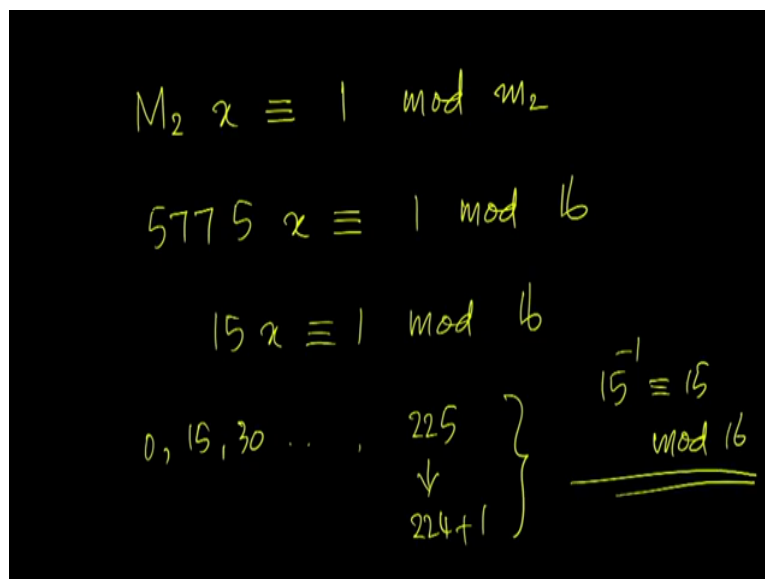 M₂ x ≡ 1 mod m₂
5775 x ≡ 1 mod 16
15 x ≡ 1 mod 16
0, 15, 30 . . . . 225
↓
224+1
15⁻¹ ≡ 15
mod 16